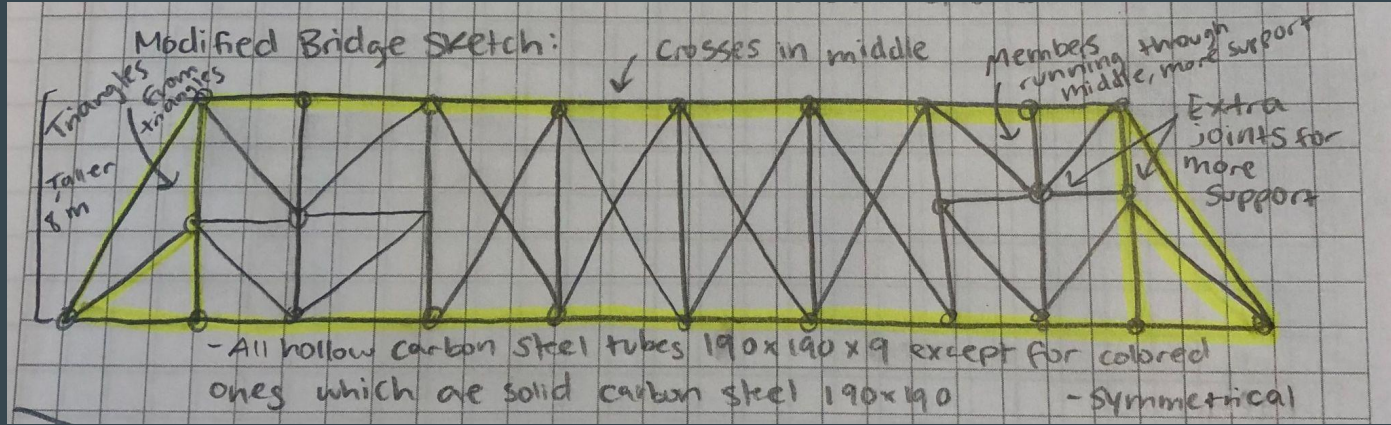 Modified Bridge Sketch:
Crosses in middle
Members
running though
middle, more support
Triangles
from
triangles
Extra
joints for
more
support
Taller
8 m
- All hollow carbon steel tubes 190x190x9 except for colored
ones which are solid carbon steel 190x190
- Symmetrical